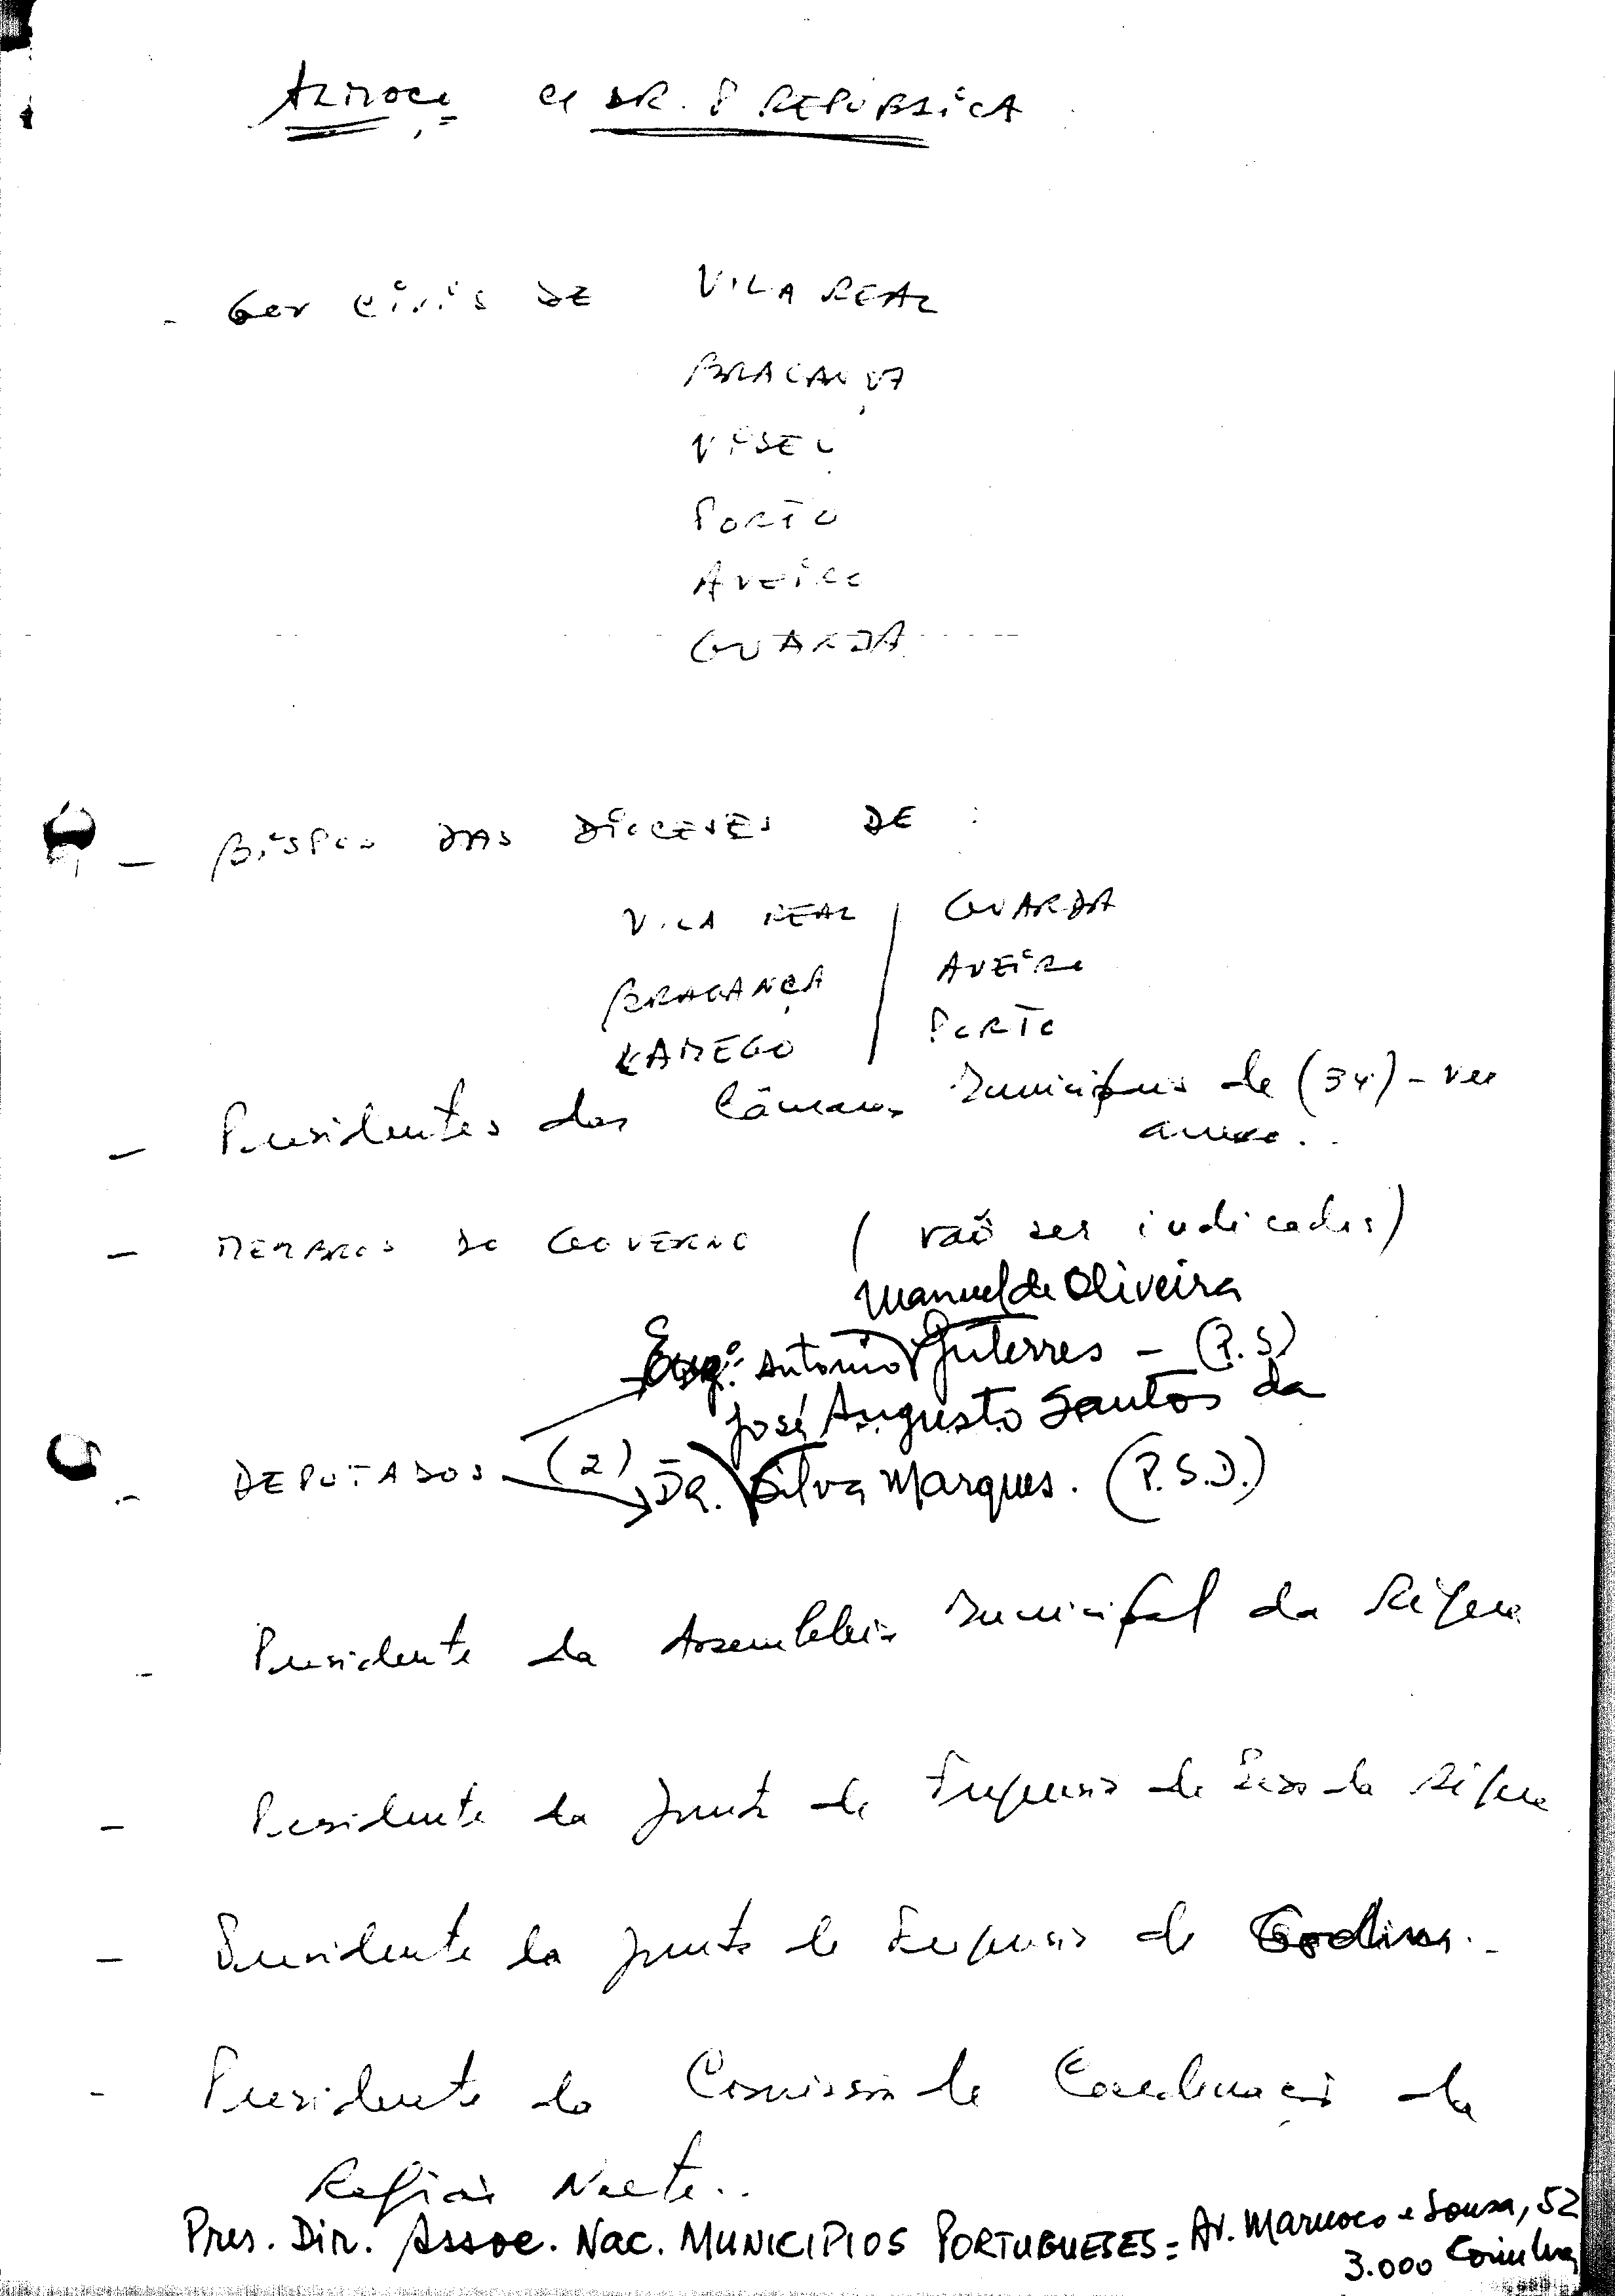 ALMOÇO C/ SR. P REPÚBLICA
- Gov Civis DE VILA REAL
BRAGANÇA
VISEU
PORTO
AVEIRO
GUARDA
- BISPOS DAS DIOCESES DE :
VILA REAL / GUARDA
BRAGANÇA / AVEIRO
LAMEGO / PORTO
- Presidentes das Câmaras Municipais de (34) - ver
anexo..
- MEMBROS DO GOVERNO (vão ser indicados)
Manuel de Oliveira
Engº. António Guterres - (P.S)
José Augusto Santos da
- DEPUTADOS (2) - DR. Silva Marques. (P.S.D.)
- Presidente da Assembleia Municipal da Régua
- Presidente da Junta de Freguesia de Peso da Régua
- Presidente da Junta de Freguesia de Godim.
- Presidente da Comissão de Coordenação da
Região Norte..
Pres. Dir. Assoc. Nac. MUNICIPIOS PORTUGUESES = Av. Marnoco e Sousa, 52
3.000 Coimbra